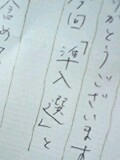 りがとうございます
今回「準入選」と
含め